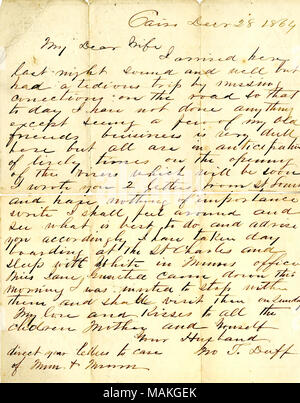 Cairo Decr 28 1864
My Dear Wife
I arrived here
last night sound and well but
had a tedious trip by missing
connections on the road so that
to day I have not done anything
except seeing a few of my old
friends business is very dull
here but all are in anticipation
of lively times on the opening
of the Rivers which will be soon
I wrote you 2 letters from St Louis
and have nothing of importance
write I shall feel around and
see what is best to do and advise
you accordingly I have taken day
boarding at the St Charles and
sleep with White in Munns office
Miss Jane came down this
morning was invited to stop with
them and shall visit them on Sunday
My love and Kisses to all the
children Mother and Yourself
Your Husband
Jno T. Duff
direct your letters to care
of Munn & Munn
alamy
Image ID: MAKGEK
www.alamy.com